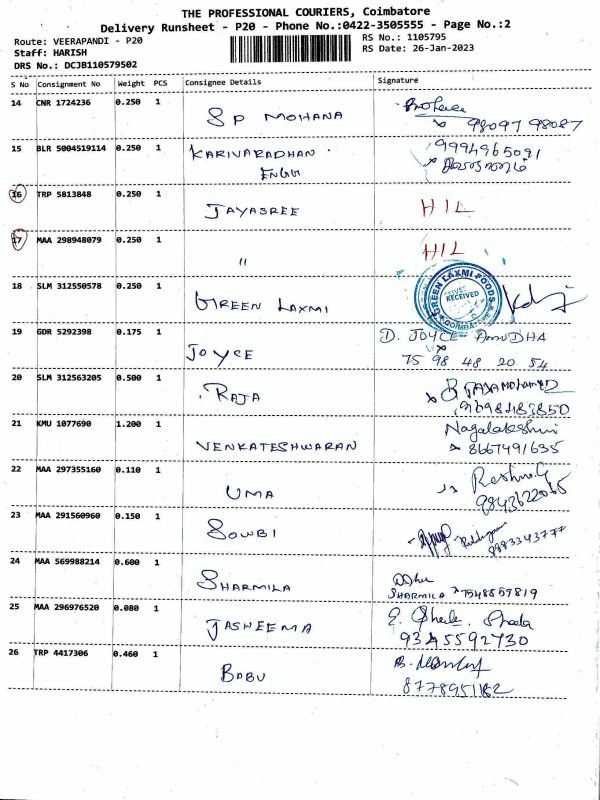 THE PROFESSIONAL COURIERS, Coimbatore
Delivery Runsheet - P20 - Phone No.:0422-3505555 - Page No.:2
Route: VEERAPANDI - P20
Staff: HARISH
DRS No.: DCJB110579502
RS No.: 1105795
RS Date: 26-Jan-2023
S No Consignment No Weight PCS Consignee Details Signature
14 CNR 1724236 0.250 1 SP MOHANA
98097 98087
15 BLR 5004519114 0.250 1 KARIVARADHAN 9994965091
ENGG
16 TRP 5813848 0.250 1 JAYASREE HIL
17 MAA 298948079 0.250 1 " HIL
18 SLM 312550578 0.250 1 GREEN LAXMI
GREEN LAXMI FOODS
RECEIVED
COIMBATORE
19 GDR 5292398 0.175 1 JOYCE D. JOYCE ANUDHA
75 98 48 20 54
20 SLM 312563205 0.500 1 RAJA
21 KMU 1077690 1.200 1 VENKATESHWARAN Nagalakshmi
8667491635
22 MAA 297355160 0.110 1 UMA Reshmi G
23 MAA 291560960 0.150 1 SOWBI
24 MAA 569988214 0.600 1 SHARMILA
SHARMILA 7548857819
25 MAA 296976520 0.080 1 JASWEEMA
26 TRP 4417306 0.460 1 BABU
8778951182